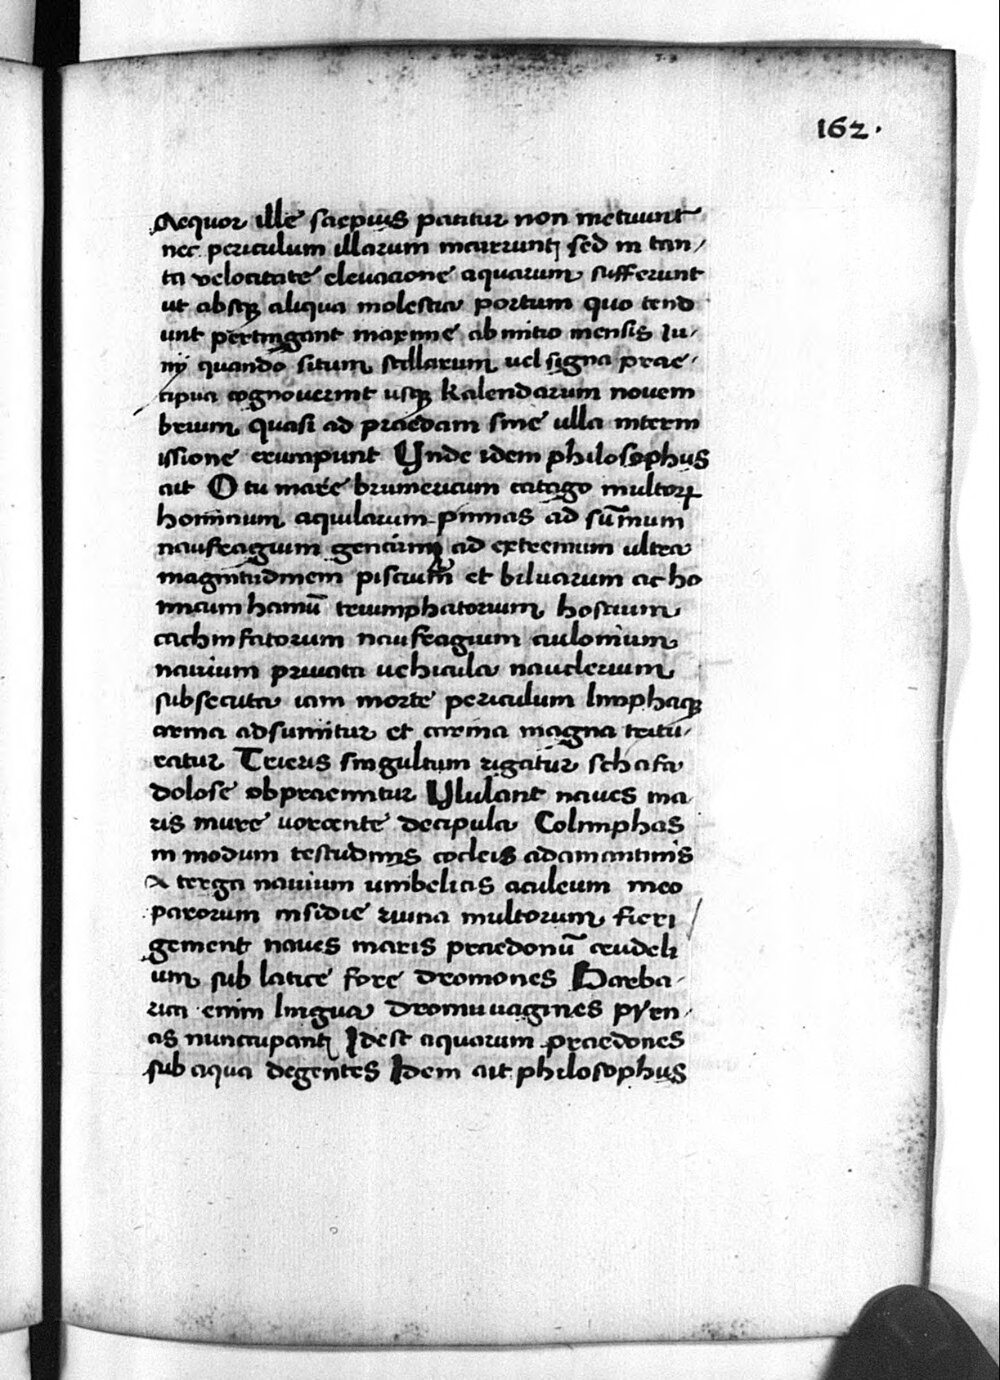 162.
Aequor ille saepius patitur non metuunt
nec periculum illarum maerrunt sed in tan/
ta velocitate elevacione aquarum sufferunt
ut absque aliqua molestia portum quo tend
unt pertingant maxime ab initio mensis Iu/
nij quando situm stellarum vel signa prae/
cipua cognoverint usque kalendarum novem
brium quasi ad praedam sine ulla interm
issione erumpunt Unde idem philosophus
ait O tu mare brumericum catago multorum
hominum aquilarum pinnas ad summum
naufragium gencium ad extremum ultra
magnitudinem piscium et biluarum ac ho
micum hamū triumphatorium hostium
cachinfatorum naufragium aulonium
navium privata vehicula nauclerium
subsecuta iam morte periculum limphaque
arma adsumitur et arma magna tritu/
ratur Trieris singultum rigatur schafa
dolose obpraemitur Ululant naves ma
ris mure vorante decipula Colimphas
in modum testudinis cocleis adamantinis
a terga navium umbelicis aculeum meo
parorum insidie ruina multorum fieri
gement naves maris praedonū crudeli
um sub latice fore dromones Barba/
rica enim lingua dromuvagines pyrn/
as nuncupant Idest aquarum praedones
sub aqua degentes Idem ait philosophus